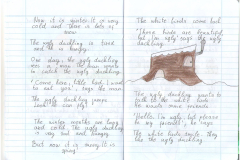 Now it is winter. It is very
cold and there is lots of
snow.
The ugly duckling is tired
and he is hungry.
One day, the ugly duckling
sees a man. The man wants
to catch the ugly duckling.
"Come here little bird, I want
to eat you", says the man.
The ugly duckling jumps
and he
The winter months are long
and cold. The ugly duckling
is very sad and hungry.
But now it is
spring
The white birds come back
"Those birds are beautiful
but I'm ugly" says the ugly
duckling.
The ugly duckling wants to
talk to the white birds
"Hello, I'm ugly, but please
be my friends", he says
The white birds smile. They
like the ugly duckling